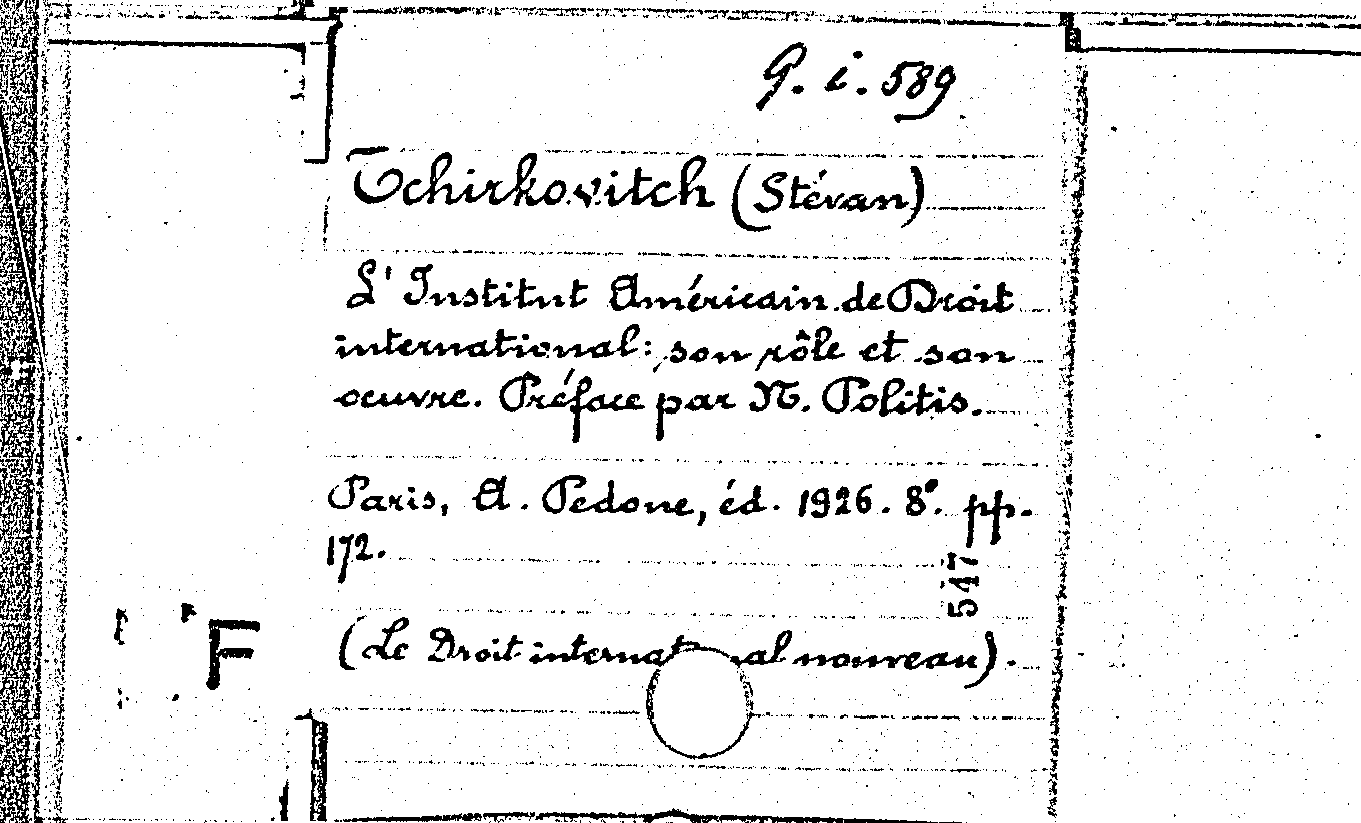 G. i. 589
Tchirkovitch (Stévan)
L'Institut Américain de Droit
international: son rôle et son
oeuvre. Préface par N. Politis.
Paris, A. Pedone, éd. 1926. 8°. pp.
172.
547
F
(Le Droit international nouveau).